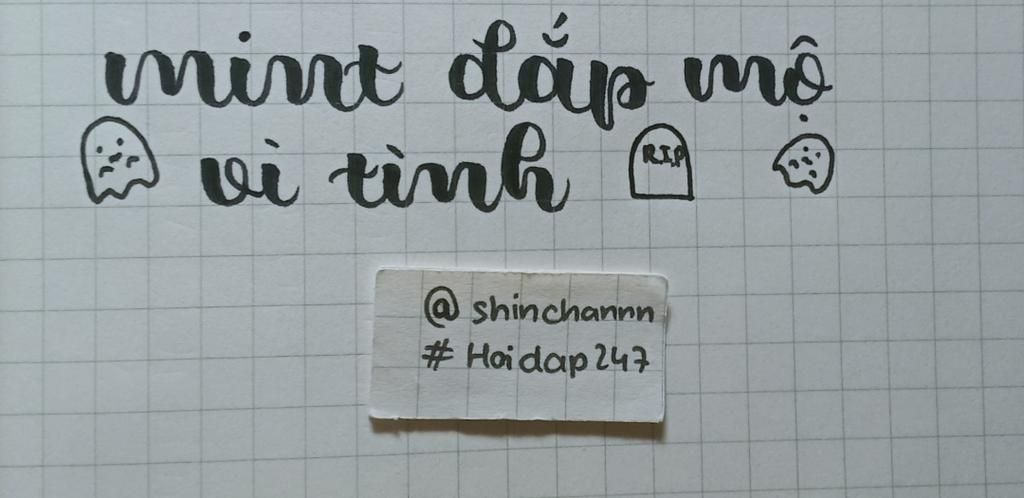 mint đắp mộ
vì tình
R.I.P
@ shinchannn
# Hoidap247